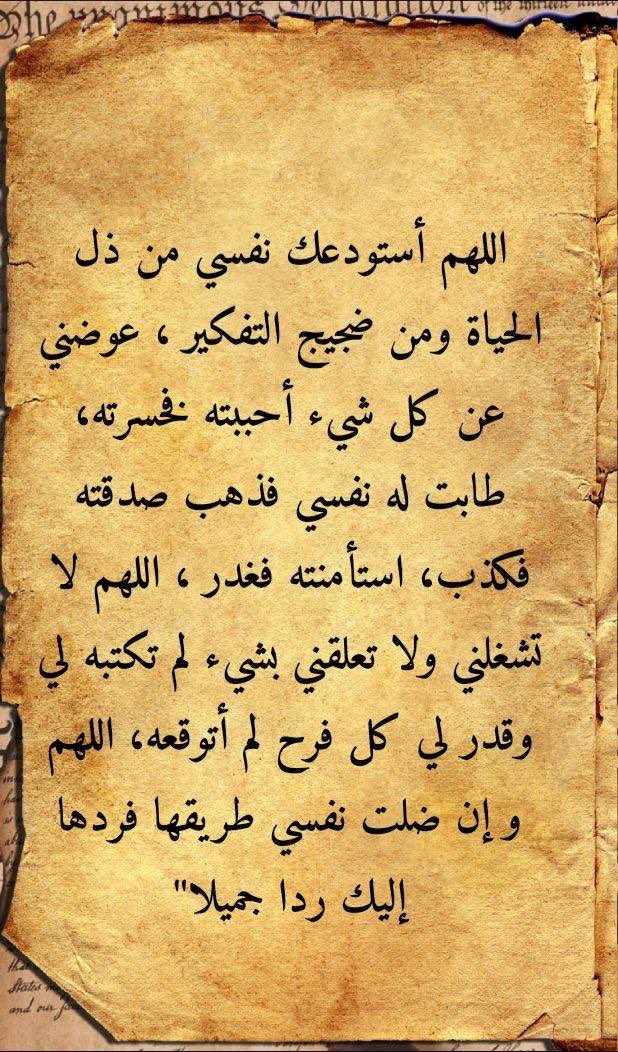 The unanimous Declaration of the thirteen united
اللهم أستودعك نفسي من ذل
الحياة ومن ضجيج التفكير ، عوضني
عن كل شيء أحببته فخسرته،
طابت له نفسي فذهب صدقته
فكذب، استأمنته فغدر ، اللهم لا
تشغلني ولا تعلقني بشيء لم تكتبه لي
وقدر لي كل فرح لم أتوقعه، اللهم
و إن ضلت نفسي طريقها فردها
إليك ردا جميلا"
that
States
and our